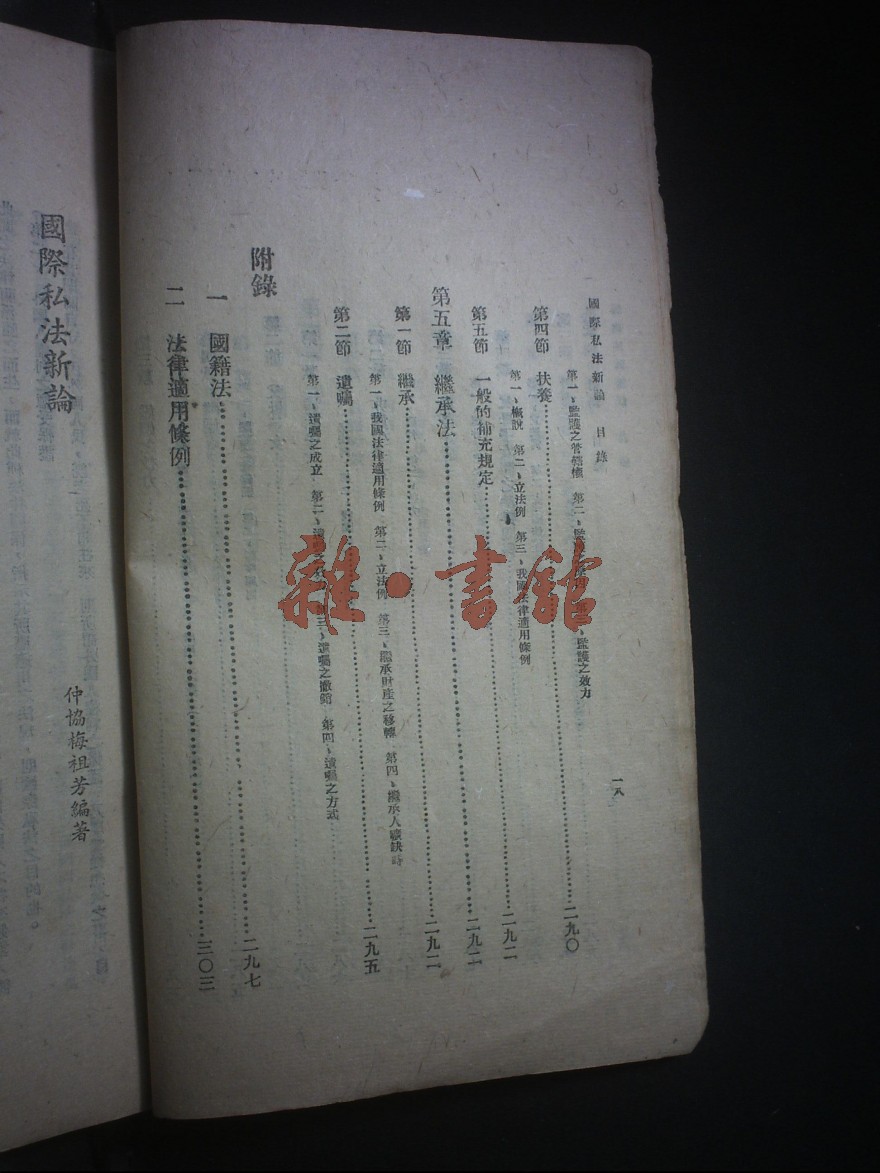 國際私法新論 目錄
一八
第一、監護之管轄權 第二、監護之 監護之效力
第四節 扶養……二九〇
第一、概說 第二、立法例 第三、我國法律適用條例
第五節 一般的補充規定……二九二
第五章 繼承法……二九二
第一節 繼承……二九二
第一、我國法律適用條例 第二、立法例 第三、繼承財產之移轉 第四、繼承人曠缺時
第二節 遺囑……二九五
第一、遺囑之成立 第二、遺囑之 第三、遺囑之撤銷 第四、遺囑之方式
附錄
一 國籍法……二九七
二 法律適用條例……三〇三
國際私法新論
仲協梅祖芳編著
雜·書館